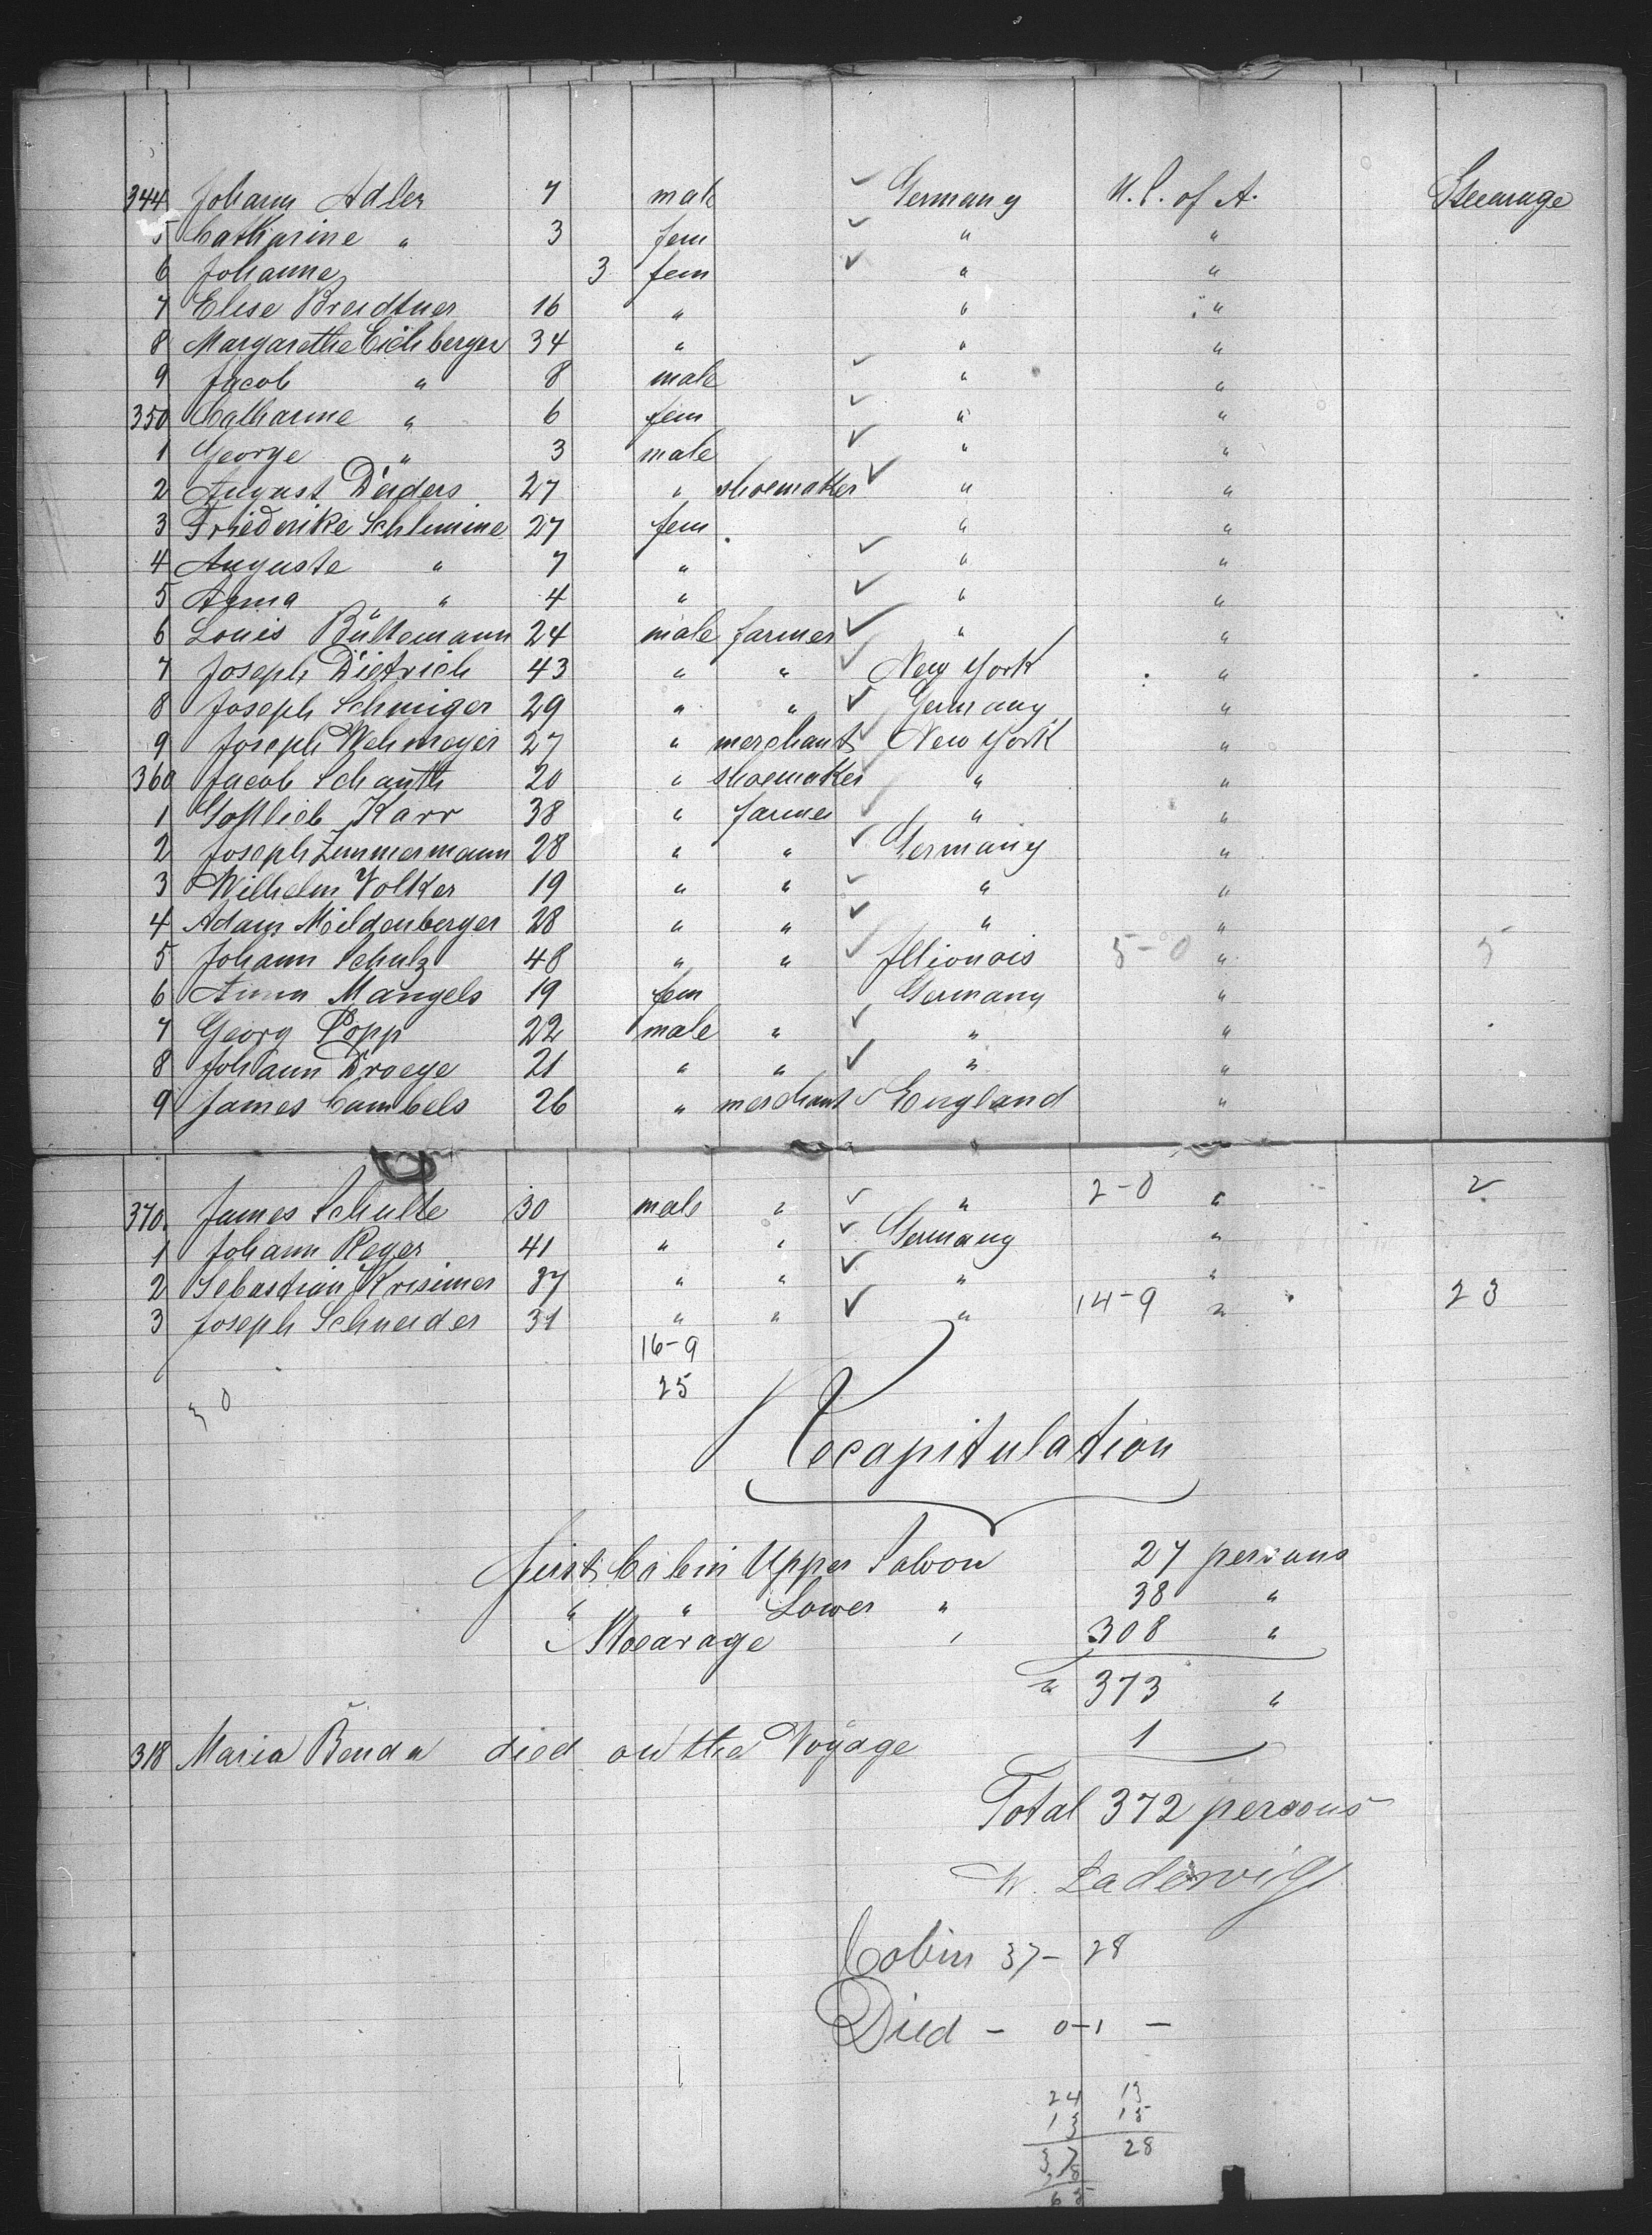 344 Johann Adler 7 male Germany U. S. of A. Steerage
5 Catharine " 3 fem " "
6 Johanna 3 fem " "
7 Elise Breidtner 16 " " "
8 Margarethe Eichberger 34 " " "
9 Jacob " 8 male " "
350 Catharine " 6 fem " "
1 George " 3 male " "
2 August Deiders 27 " shoemaker " "
3 Friederike Schlumine 27 fem " "
4 Auguste " 7 " " "
5 Anna " 4 " " "
6 Louis Bültemann 24 male farmer " "
7 Joseph Dietrich 43 " " New York "
8 Joseph Schmiger 29 " " Germany "
9 Joseph Wehmeyer 27 " merchant New York "
360 Jacob Schanth 20 " shoemaker " "
1 Gottlieb Karr 38 " farmer " "
2 Joseph Zimmermann 28 " " Germany "
3 Wilhelm Volker 19 " " " "
4 Adam Mildenberger 28 " " " "
5 Johann Schulz 48 " " Illionois 5-0 " 5
6 Anna Mangels 19 fem Germany "
7 Georg Popp 22 male " " "
8 Johann Droege 21 " " " "
9 James Cambels 26 " merchant England "
370 James Schulte 30 male " " 2-0 " 2
1 Johann Reger 41 " " Germany "
2 Sebastian Krisimer 37 " " " "
3 Joseph Schneider 31 " " " 14-9 " 23
16-9
25
Recapitulation
first Cabin Upper Saloon 27 persons
" " Lower " 38 "
Steerage " 308 "
" 373 "
318 Maria Benda died on the Voyage 1
Total 372 persons
W. Ladewig
Cabin 37- 28
Died - 0-1 -
24 13
13 15
37 28
28
65